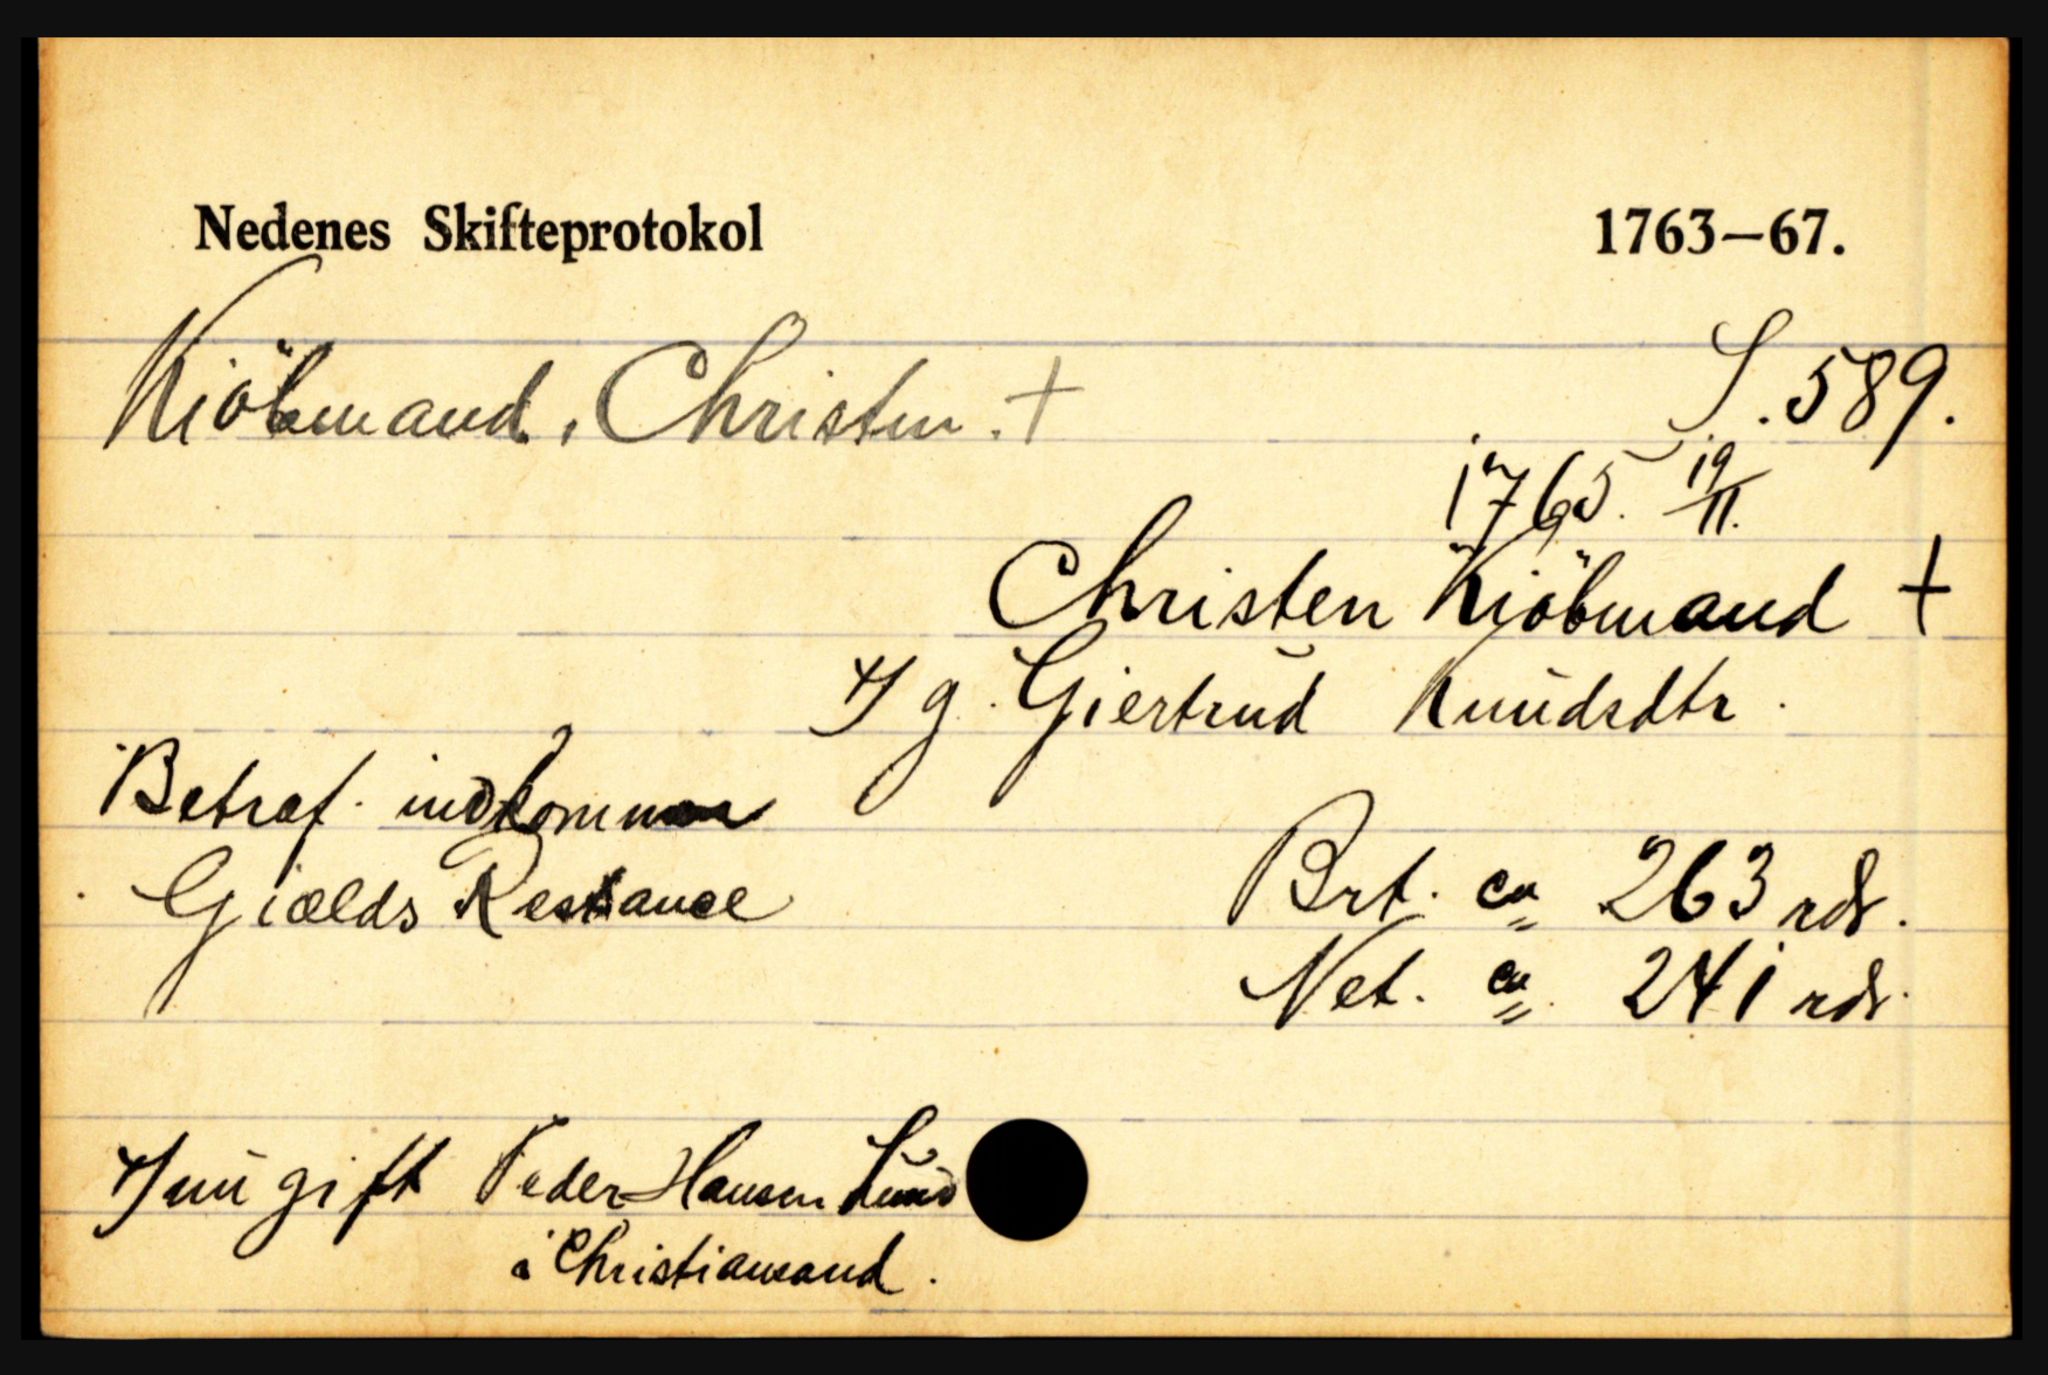 Nedenes Skifteprotokol 1763–67.
Kiöbmand, Christen. + S. 589.
1765. 19/11.
Christen Kiöbmand +
g. Giertrud Knŭdsdtr.
Betræf. indkommen
Giælds Restance
Brt. ca 263 rdr.
Net. ca. 241 rdr.
nŭ gift Peder Hansen Lŭnd
i Christiansand.